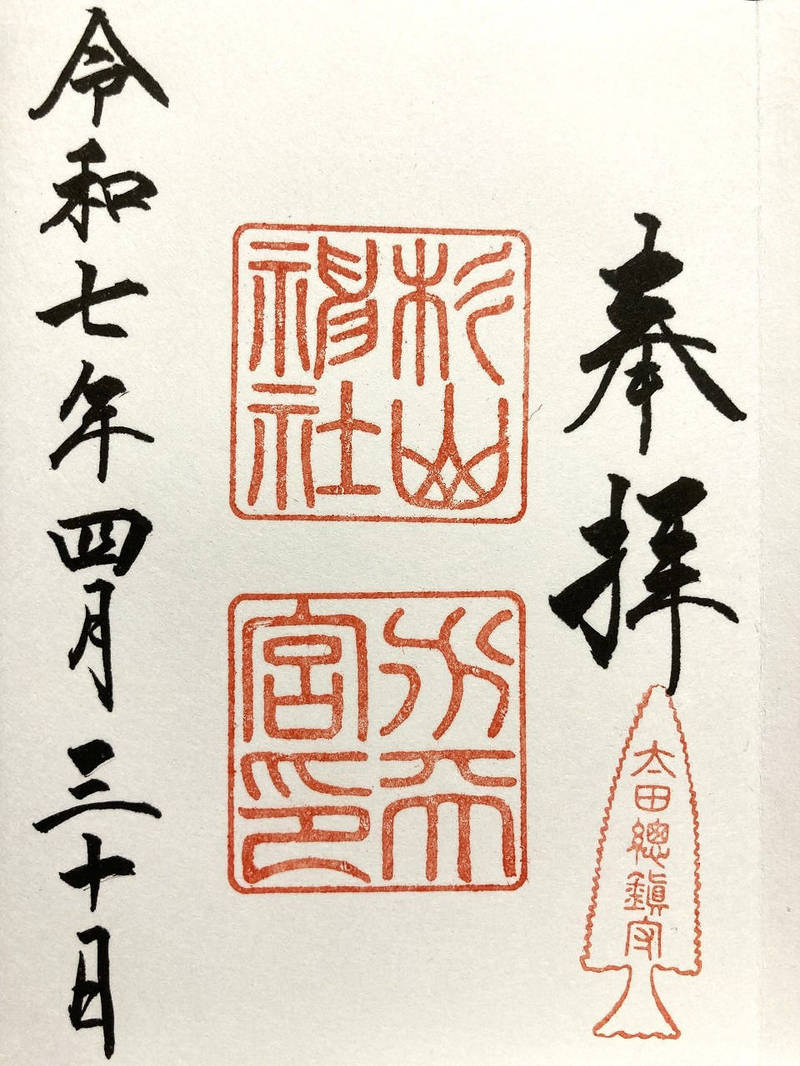 奉拝
太田總鎮守
杉山
神社
水天
宮印
令和七年四月三十日